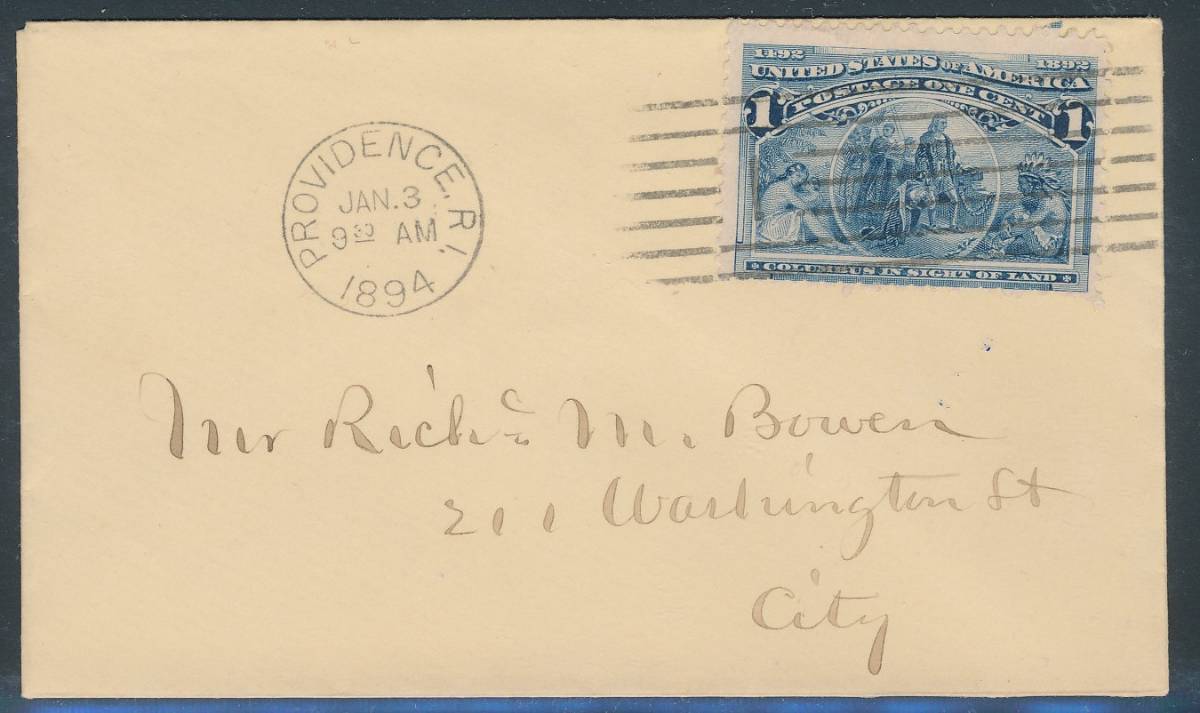 1492 1892
UNITED STATES OF AMERICA
POSTAGE ONE CENT
1 1
COLUMBUS IN SIGHT OF LAND
PROVIDENCE, R.I.
JAN. 3
9 30 AM
1894
Mr Richd M. Bowen
211 Washington St
City